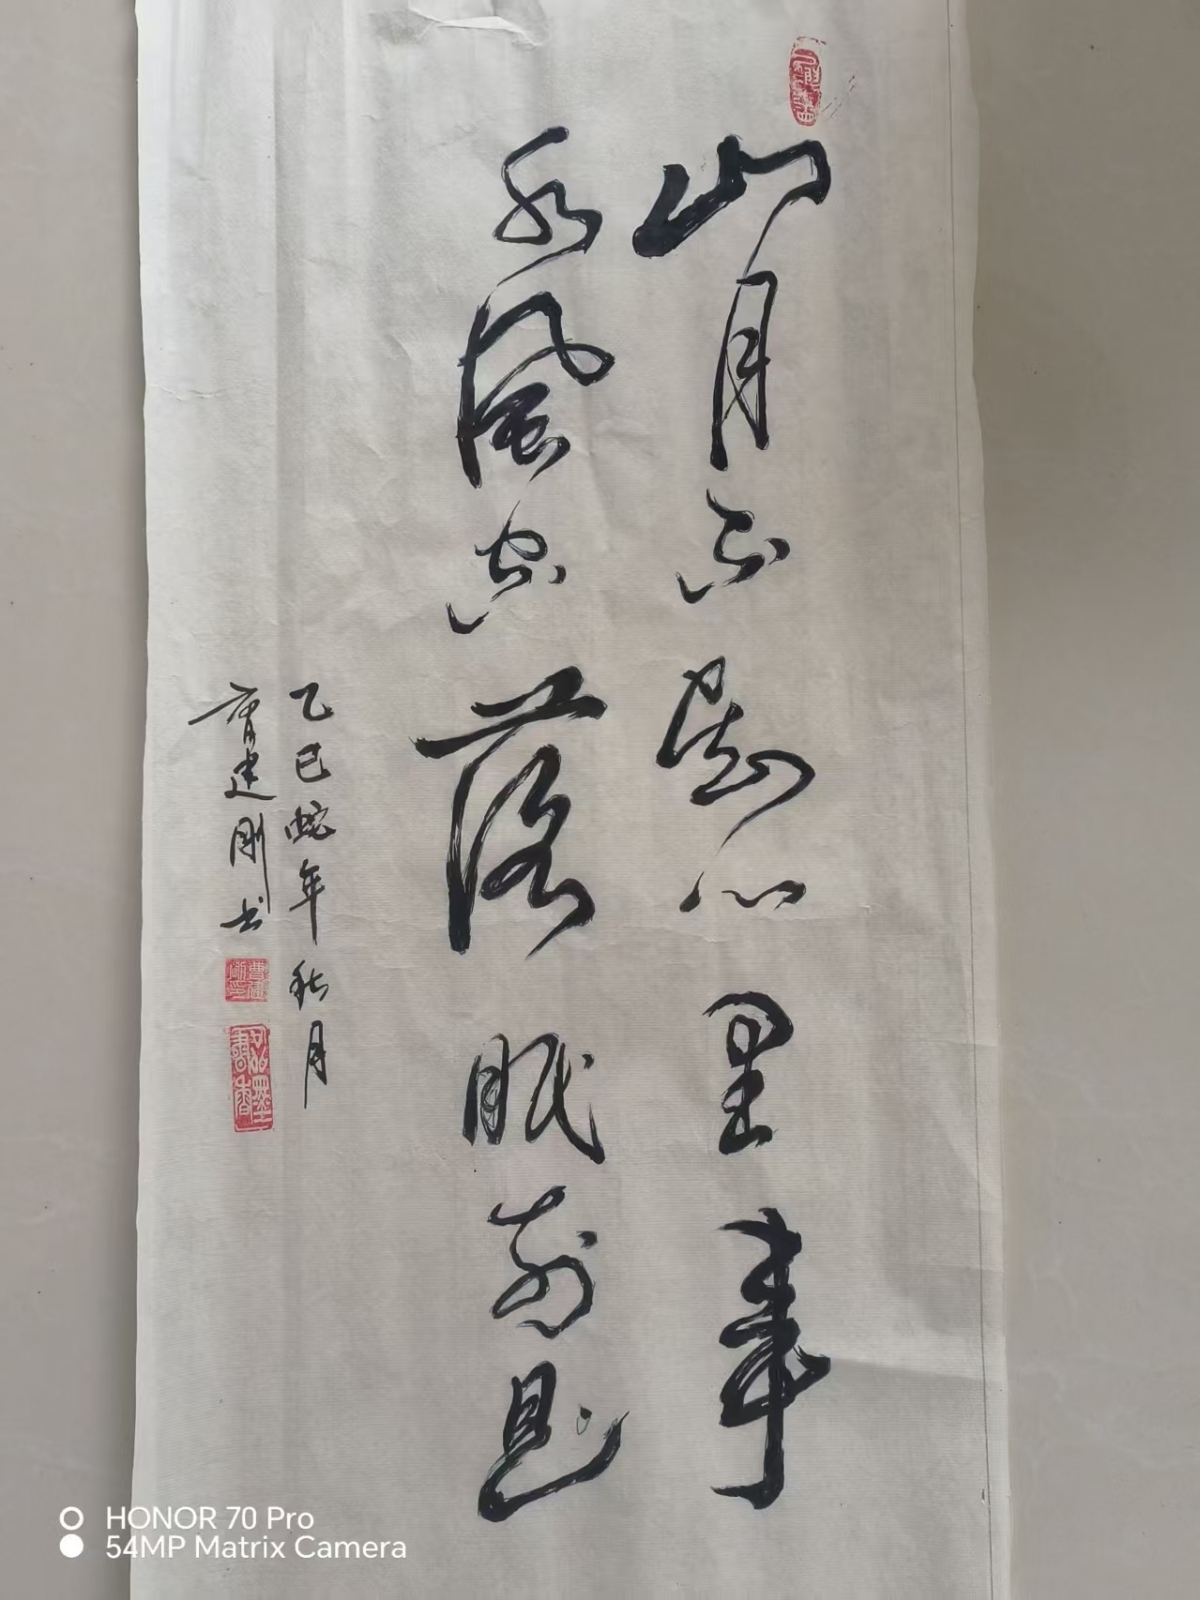 山月不知心里事
水风空落眼前眉
乙巳蛇年秋月
曹建刚书
HONOR 70 Pro
54MP Matrix Camera